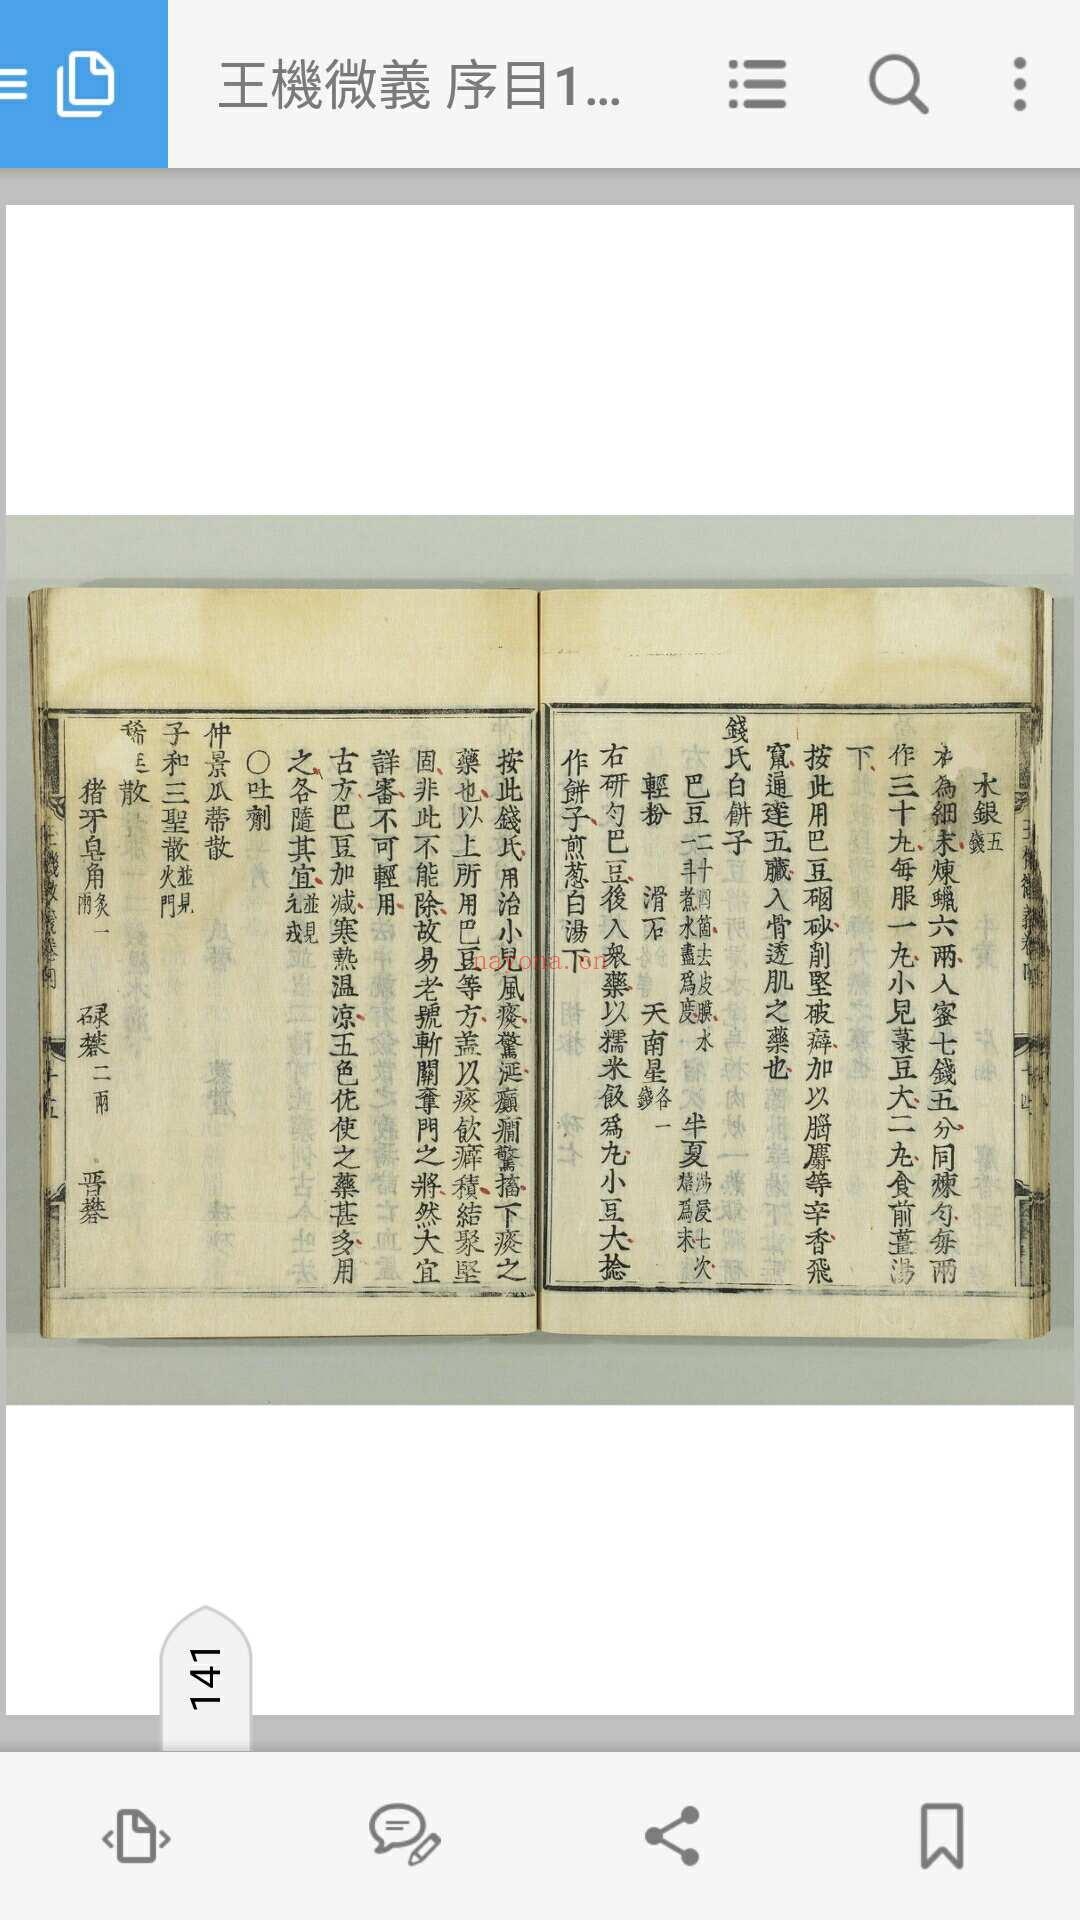 王機微義 序目1...
水銀五錢
為細末煉蠟六兩入蜜七錢五分同煉勻每兩
作三十丸每服一丸小兒菉豆大二丸食前薑湯
下
按此用巴豆硇砂削堅破癖加以腦麝等辛香飛
竄通達五臟入骨透肌之藥也
錢氏白餅子
巴豆二十四箇去皮膜水一斗煮水盡為度 半夏湯浸七次焙為末
輕粉 滑石 天南星各一錢
右研勻巴豆後入衆藥以糯米飯為丸小豆大捻
作餅子煎葱白湯下
按此錢氏用治小兒風痰驚涎癲癇驚搐下痰之
藥也以上所用巴豆等方盖以痰飲癖積結聚堅
固非此不能除故易老號斬關奪門之將然大宜
詳審不可輕用
古方巴豆加减寒熱温凉五色侂使之藥甚多用
之各隨其宜並見元戎
○吐劑
仲景瓜蒂散
子和三聖散並見火門
稀涎散
猪牙皂角炙一兩 碌礬二兩 晋礬
nayona.cn
141